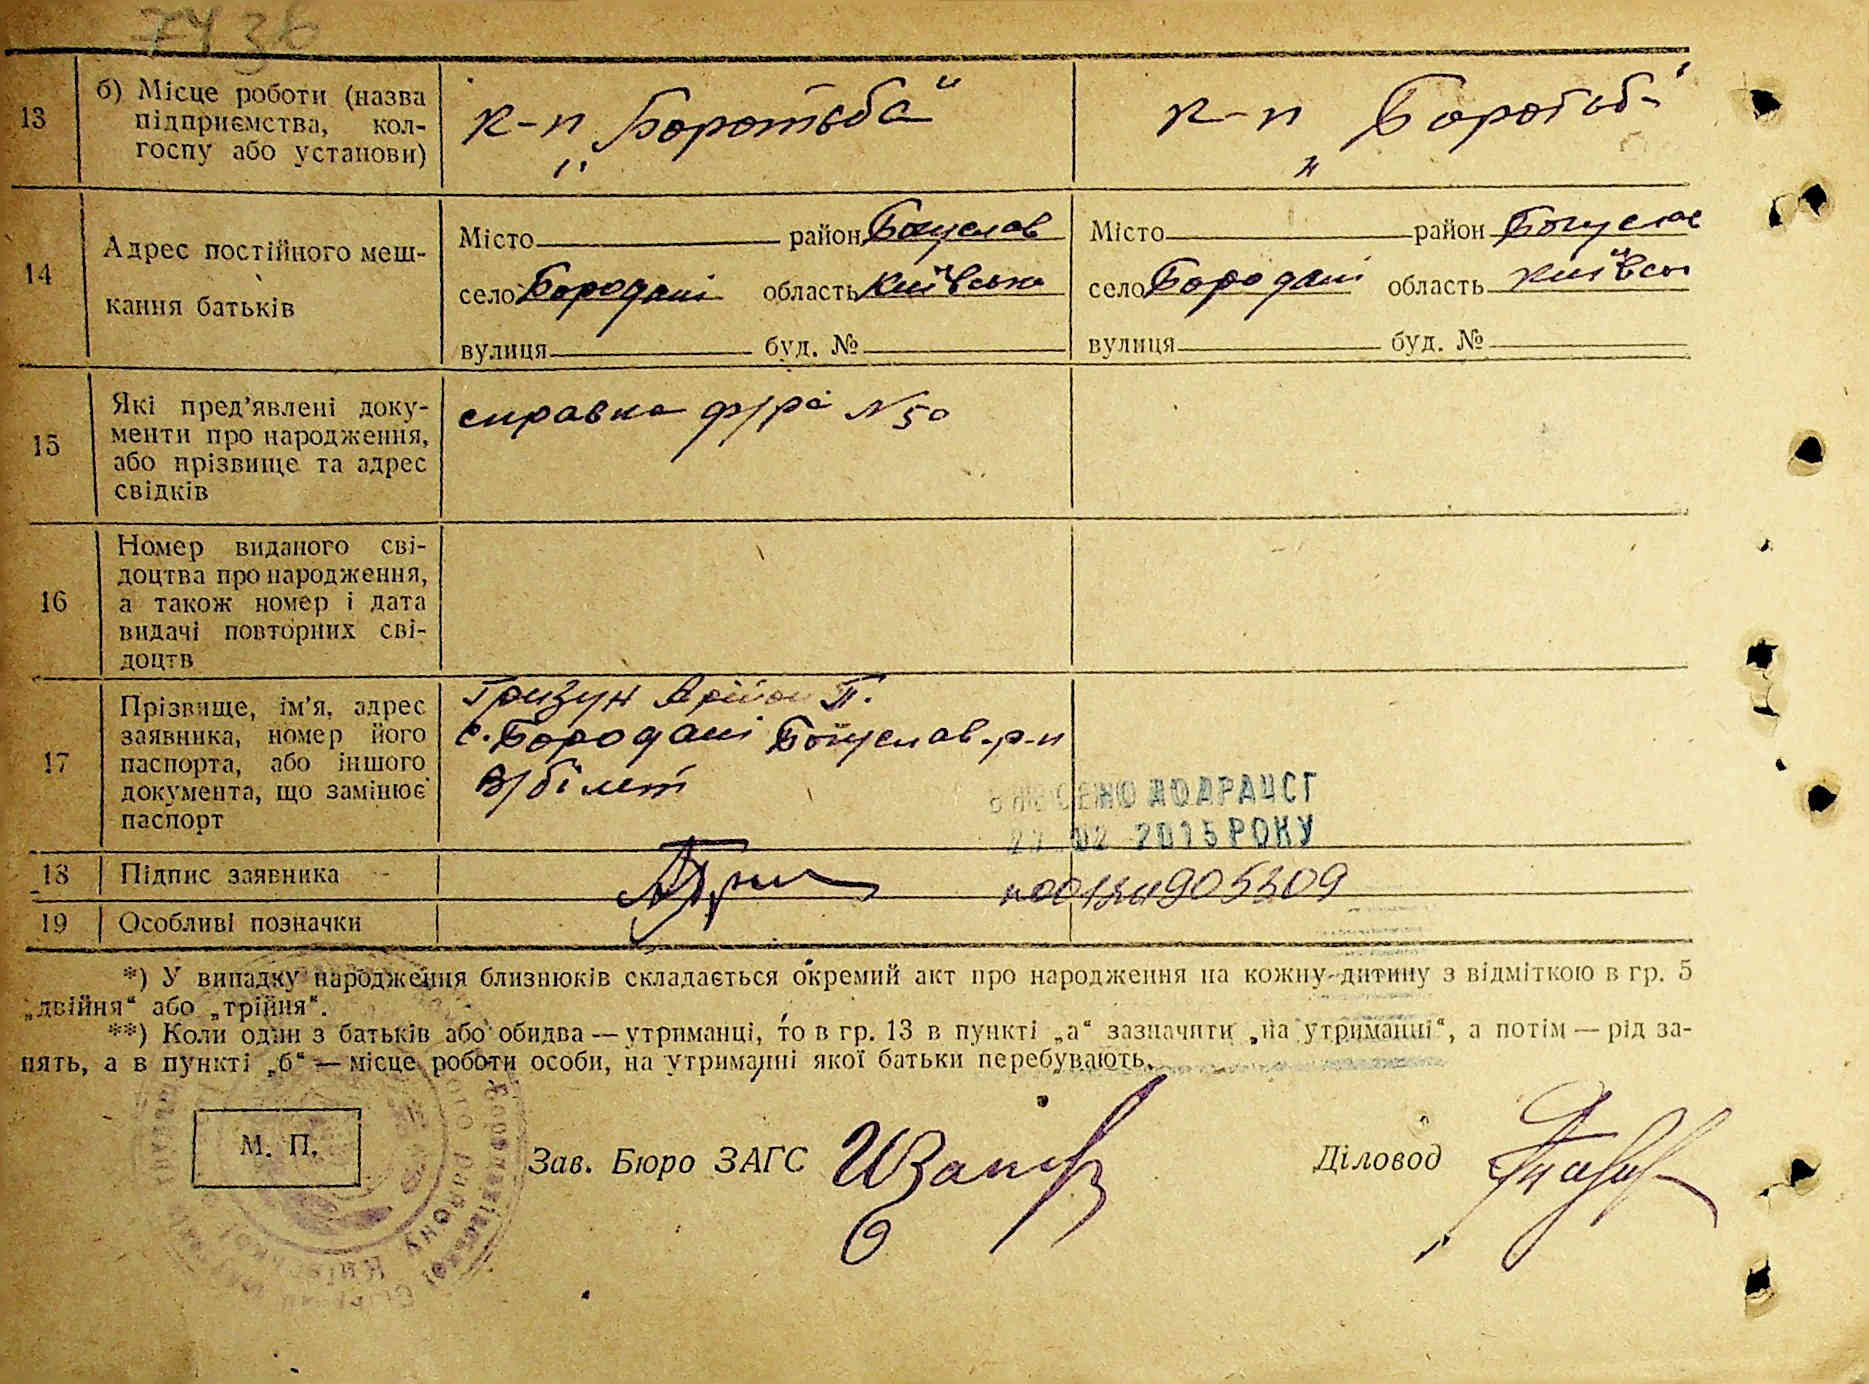 7436
13
б) Місце роботи (назва
підприємства, кол-
госпу або установи)
к-п „Боротьба“
к-п „Боротьб-“
14
Адрес постійного меш-
кання батьків
Місто район Богуслав
село Бородані область Київська
вулиця буд. №
Місто район Богуслав
село Бородані область Київськ
вулиця буд. №
15
Які пред'явлені доку-
менти про народження,
або прізвище та адрес
свідків
справка ф/ра N 50
16
Номер виданого сві-
доцтва про народження,
а також номер і дата
видачі повторних сві-
доцтв
17
Прізвище, ім'я, адрес
заявника, номер його
паспорта, або іншого
документа, що замінює
паспорт
Гризун П.
с. Бородані Богуслав. р-н
в/білет
ВНЕСЕНО ДО ДРАЦСГ
02 2015 РОКУ
18
Підпис заявника
19
Особливі позначки
*) У випадку народження близнюків складається окремий акт про народження на кожну дитину з відміткою в гр. 5
„двійня“ або „трійня“.
**) Коли один з батьків або обидва — утриманці, то в гр. 13 в пункті „а“ зазначити „на утриманні“, а потім — рід за-
нять, а в пункті „б“ — місце роботи особи, на утриманні якої батьки перебувають.
М. П.
Зав. Бюро ЗАГС
Діловод